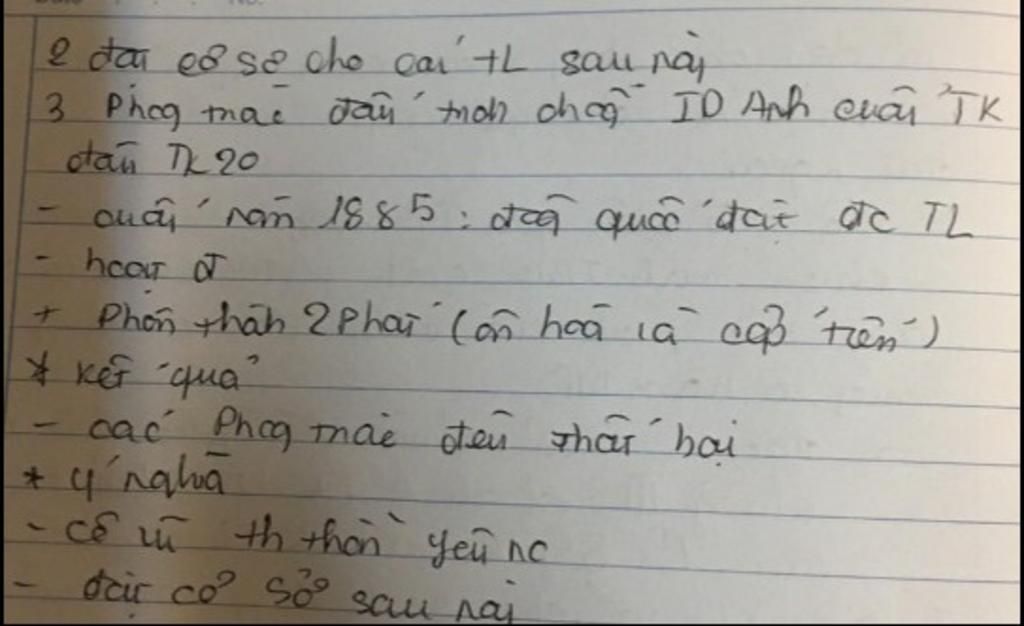 2 đặt cơ sở cho cái TL sau này
3 Phog mac đấu tranh chog TD Anh cuối TK
đầu TK 20
- cuối năm 1885: đảg quốc đại đc TL
- hoạt đ
+ Phân thàh 2 Phái (ôn hoà và cấp tiến)
* kết quả
- các Phog mac đều thất bại
* ý nghĩa
- cổ vũ th thần yêu nc
- đặt cơ sở sau này